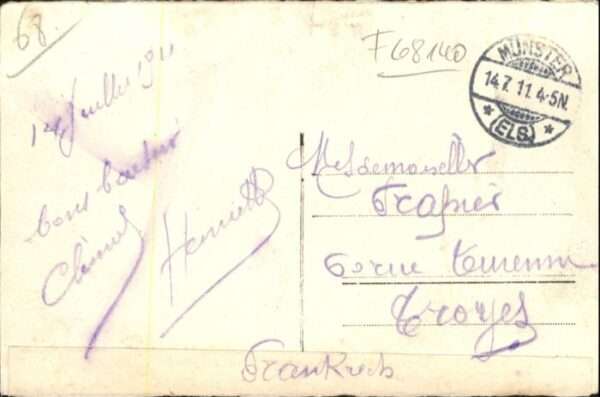 68.
F68140
MÜNSTER
14.7.11.4-5N.
* (ELS.) *
14 Juillet 1911
bons baisers
Henriette
Mesdemoiselles
rue Turenne
Troyes
Frankreich